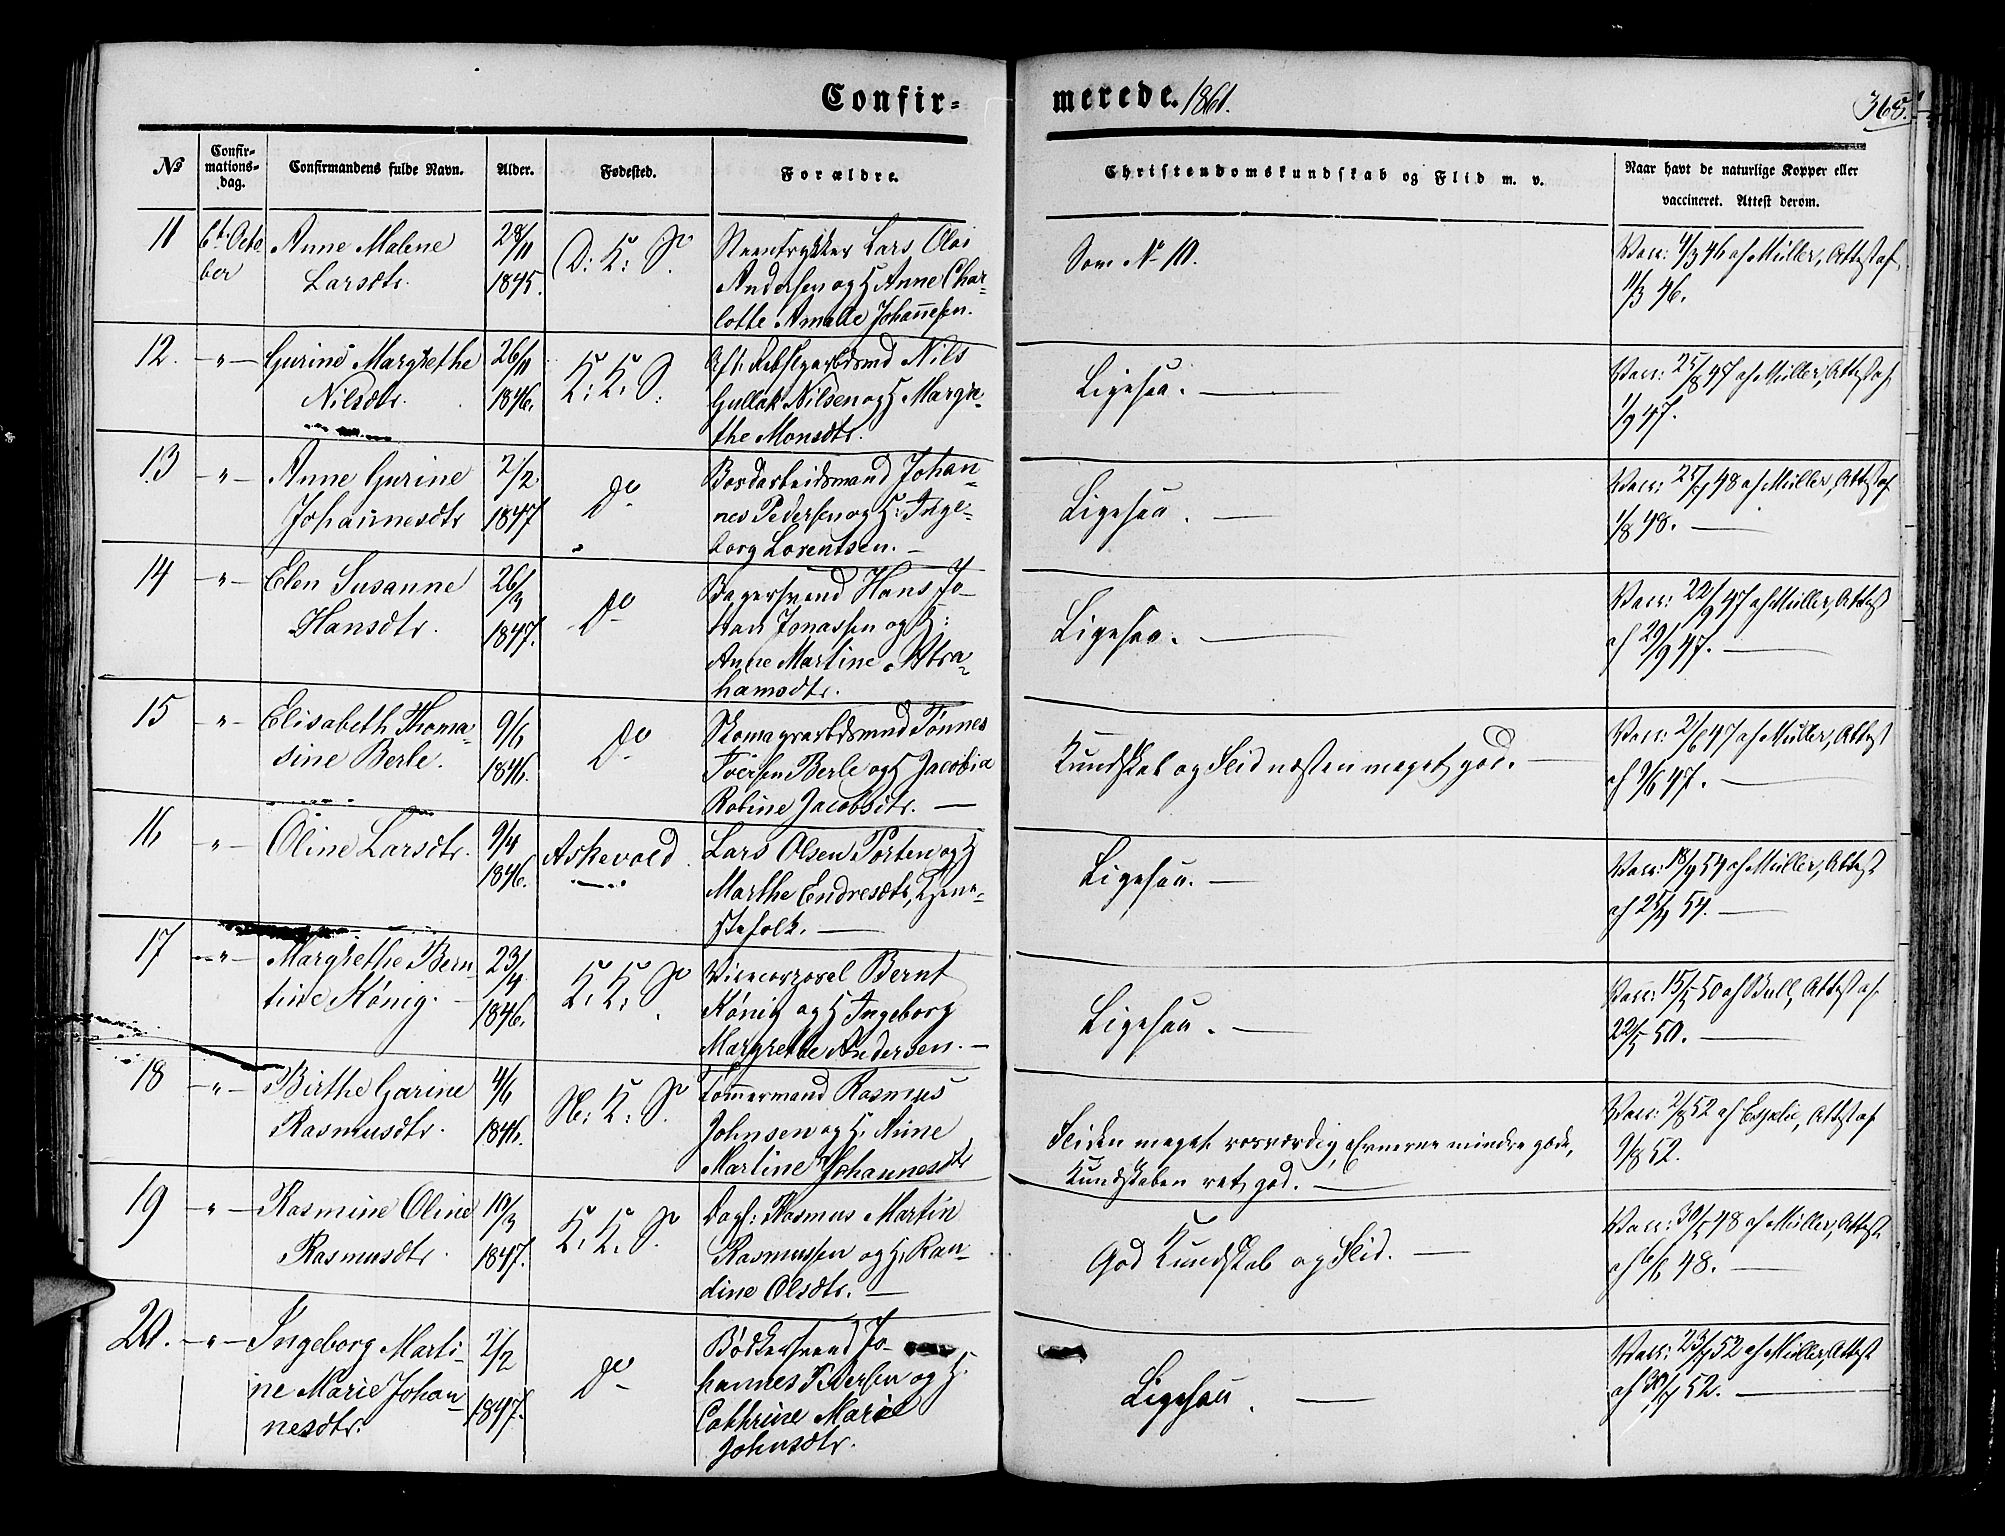 Confir-
merede. 1861.
368.
No
Confir-
mations-
dag.
Confirmandens fulde Navn.
Alder.
Fødested.
Forældre.
Christendomskundskab og Flid m. v.
Naar havt de naturlige Kopper eller
vaccineret. Attest derom.
11
6t. Octo
ber
Anne Malene
Larsdtr.
28/11
1845.
D: K: S
Steentrykker Lars Olai
Andersen og H Anne Char-
lotte Amalie Johannesen.
Som No 10.
Vacc: 4/3 46 af Müller, Attest af
11/3 46.
12.
-"-
Gurine Margrethe
Nilsdtr.
26/11
1846.
K: K: S.
Nils
Gullak Nilsen og H Margre-
the Monsdtr.
Ligesaa.
Vacc: 25/8 47 af Müller, Attest af
1/9 47.
13
"
Anne Gurine
Johannesdtr
2/2
1847
Do
Bordarbeidsmand Johan-
nes Pedersen og H: Inge-
borg Lorentsen. -
Ligesaa. —
Vacc: 25/7 48 af Müller, Attest af
1/8 48. —
14
"
Elen Susanne
Hansdtr.
26/3
1847.
Do
Bagersvend Hans Jo-
Jonassen og H:
Anne Martine Abra-
hamsdtr.
Ligesaa. —
Vacc: 22/9 47 af Müller, Attest
af 29/9 47. —
15
"
Elisabeth Thoma-
sine Berle.
9/6
1846.
Do
Skomagerarbdsmd Tönnes
Iversen Berle og H Jacobia
Robine Jacobsdtr. —
Kundskab og Flid næsten meget god. —
Vacc: 2/6 47 af Müller, Attest
af 9/6 47. —
16
"
Oline Larsdtr.
9/4
1846.
Askevold.
Lars Olsen Porten og H
Marthe Endresdtr, Tjene-
stefolk. —
Ligesaa. —
Vacc: 18/9 54 af Müller, Attest
af 25/9 54. —
17
-"-
Margrethe Bern-
tine König.
23/4
1846.
K: K: S
Vicecorporal Bernt
König og H Ingeborg
Margrethe Andersen. —
Ligesaa. —
Vacc: 15/5 50 af Bull, Attest af
22/5 50. —
18
-"-
Birthe Gurine
Rasmusdtr.
4/6
1846.
N: K: S
Tømmermand Rasmus
Johnsen og H. Anne
Martine Johannesdtr
Fliden meget rosværdig, Evnerne mindre gode,
Kundskaben ret god. —
Vacc: 2/8 52 af Espelie, Attest af
9/8 52.
19
-"-
Rasmine Oline
Rasmusdtr.
10/3
1847.
K: K: S.
Dagl: Rasmus Martin
Rasmussen og H. Ran-
dine Olsdtr. —
God Kundskab og Flid. —
Vacc: 30/5 48 af Müller, Attest
af 6/6 48. —
20.
-"-
Ingeborg Marti-
ne Marie Johan-
nesdtr.
2/2
1847.
Do
Bødkersvend Jo-
hannes Pedersen og H.
Cathrine Marie
Johnsdtr.
Ligesaa. —
Vacc: 23/7 52 af Müller, Attest
af 30/7 52. —